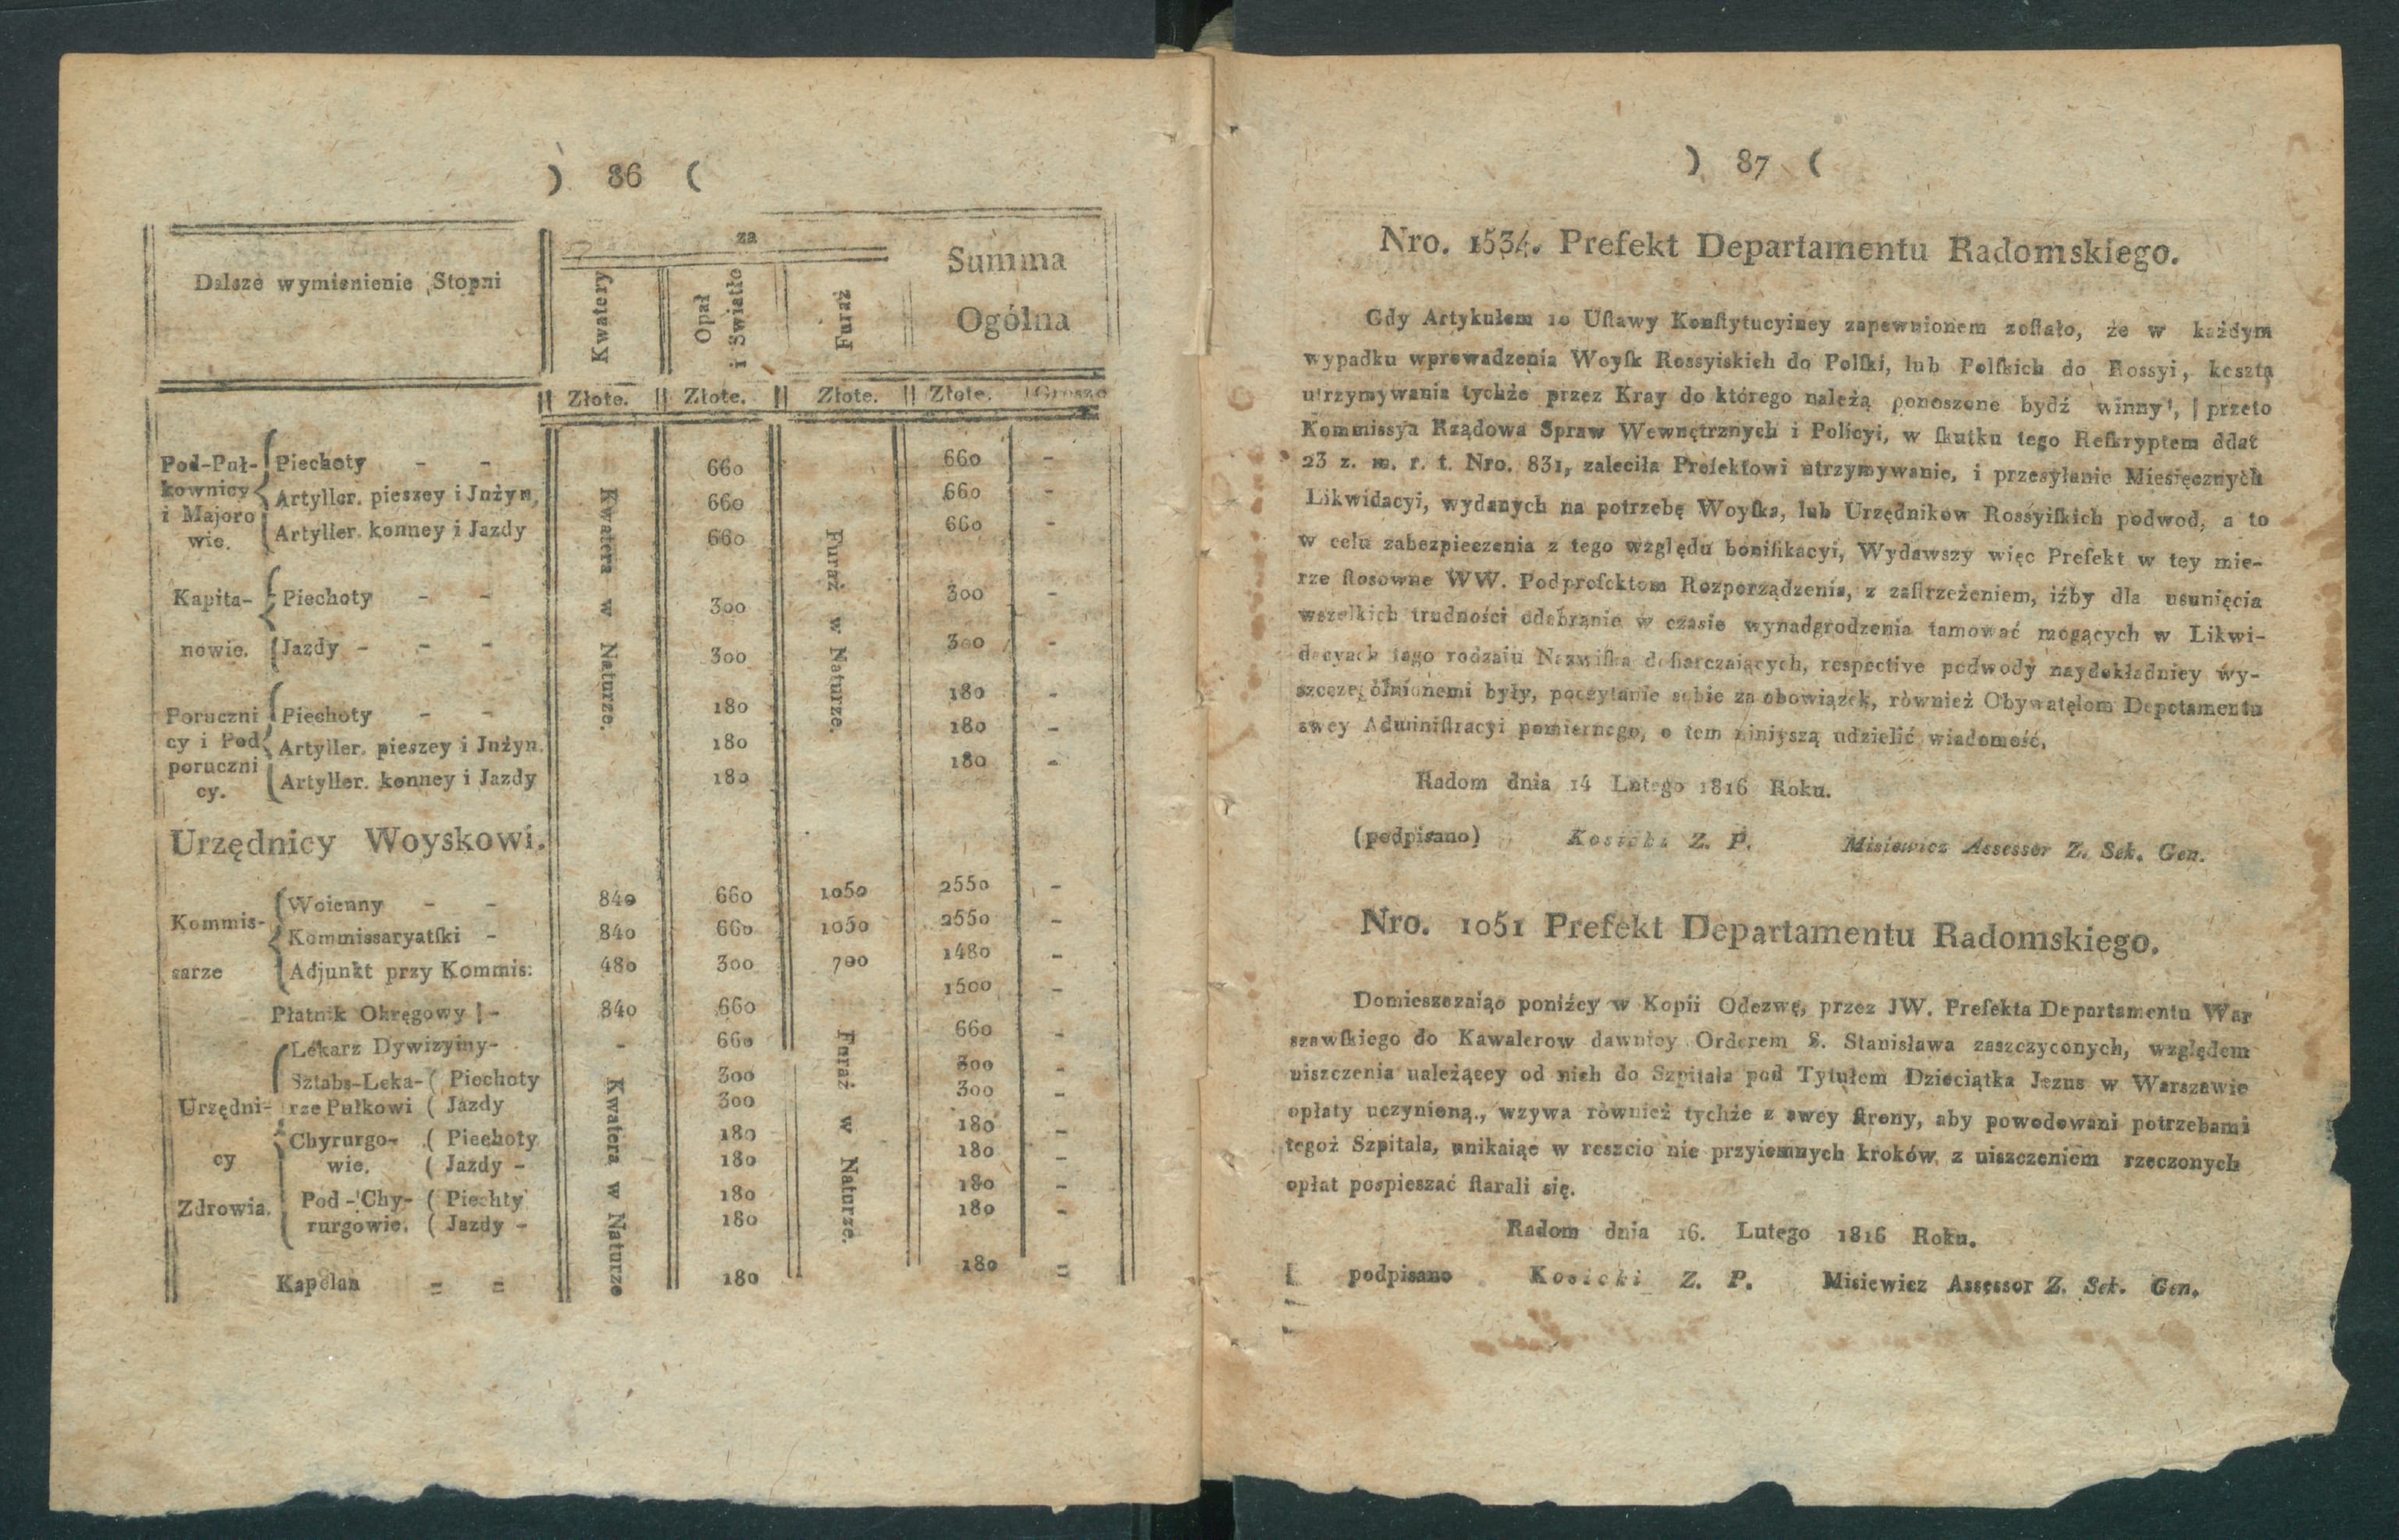 ) 86 (
za
Dalsze wymienienie Stopni
Kwatery
Opał i Swiatło
Furaż
Summa Ogólna
Złote. Złote. Złote. Złote. Grosze
Pod-Puł- Piechoty - - 660 660 -
kownicy Artyller. pieszey i Jnżyn, 660 660 -
i Majoro
wie. Artyller. konney i Jazdy 660 660 -
Kapita- Piechoty - - 300 300 -
nowie. Jazdy - - - 300 300 -
Poruczni Piechoty - - 180 180 -
cy i Pod Artyller. pieszey i Jnżyn. 180 180 -
poruczni Artyller. konney i Jazdy 180 180 -
cy.
Kwatera w Naturze.
Furaż w Naturze.
Urzędnicy Woyskowi.
Woienny - - 840 660 1050 2550 -
Kommis- Kommissaryatſki - 840 660 1050 2550 -
sarze Adjunkt przy Kommis: 480 300 700 1480 -
Płatnik Okręgowy - 840 660 1500 -
Lekarz Dywizyiny- - 660 660 -
Sztabs-Leka- ( Piechoty 300 300 -
Urzędni- rze Pułkowi ( Jazdy 300 300 -
Chyrurgo- ( Piechoty 180 180 -
cy wie. ( Jazdy - 180 180 -
Pod - Chy- ( Piechty 180 180 -
Zdrowia. rurgowie. ( Jazdy - 180 180 -
Kapelan = = 180 180 =
Kwatera w Naturze
Furaż w Naturze.
) 87 (
Nro. 1534. Prefekt Departamentu Radomskiego.
Gdy Artykułem 10 Uſtawy Konſtytucyiney zapewnionem zoſtało, że w każdym
wypadku wprowadzenia Woyſk Rossyiskich do Polſki, lub Polſkich do Rossyi, koszta
utrzymywania tychże przez Kray do którego należą ponoszone bydź winny, przeto
Kommissya Rządowa Spraw Wewnętrznych i Policyi, w ſkutku tego Reſkryptem ddat
23 z. m. r. t. Nro. 831, zaleciła Prefektowi utrzymywanie, i przesyłanie Miesięcznych
Likwidacyi, wydanych na potrzebę Woyſka, lub Urzędnikow Rossyiſkich podwod, a to
w celu zabezpieczenia z tego względu bonifikacyi, Wydawszy więc Prefekt w tey mie-
rze ſtosowne WW. Podprefektom Rozporządzenia, z zaſtrzeżeniem, iźby dla usunięcia
wszelkich trudności odebranie w czasie wynadgrodzenia tamować mogących w Likwi-
dacyach tego rodzaiu Nazwiſka doſtarczaiących, respective podwody naydokładniey wy-
szczególnionemi były, poczytanie sobie za obowiązek, również Obywatęlom Depctamentu
swey Adminiſtracyi pomiernego, o tem niniyszą udzielić wiadomość,
Radom dnia 14 Lutego 1816 Roku.
(podpisano) Kosicki Z. P. Misiewicz Assessor Z. Sek. Gen.
Nro. 1051 Prefekt Departamentu Radomskiego.
Domieszczaiąo poniźey w Kopii Odezwę, przez JW. Prefekta Departamentu War
szawſkiego do Kawalerow dawniey Orderem S. Stanisława zaszczyconych, względem
uiszczenia należącey od nich do Szpitala pod Tytułem Dzieciątka Jezus w Warszawie
opłaty uczynioną., wzywa również tychże z swey ſtrony, aby powodowani potrzebami
tegoż Szpitala, unikaiąc w reszcio nie przyiemnych kroków z uiszczeniem rzeczonych
opłat pospieszać ſtarali się.
Radom dnia 16. Lutego 1816 Roku.
podpisano Kosicki Z. P. Misiewicz Assęssor Z. Sek. Gen.